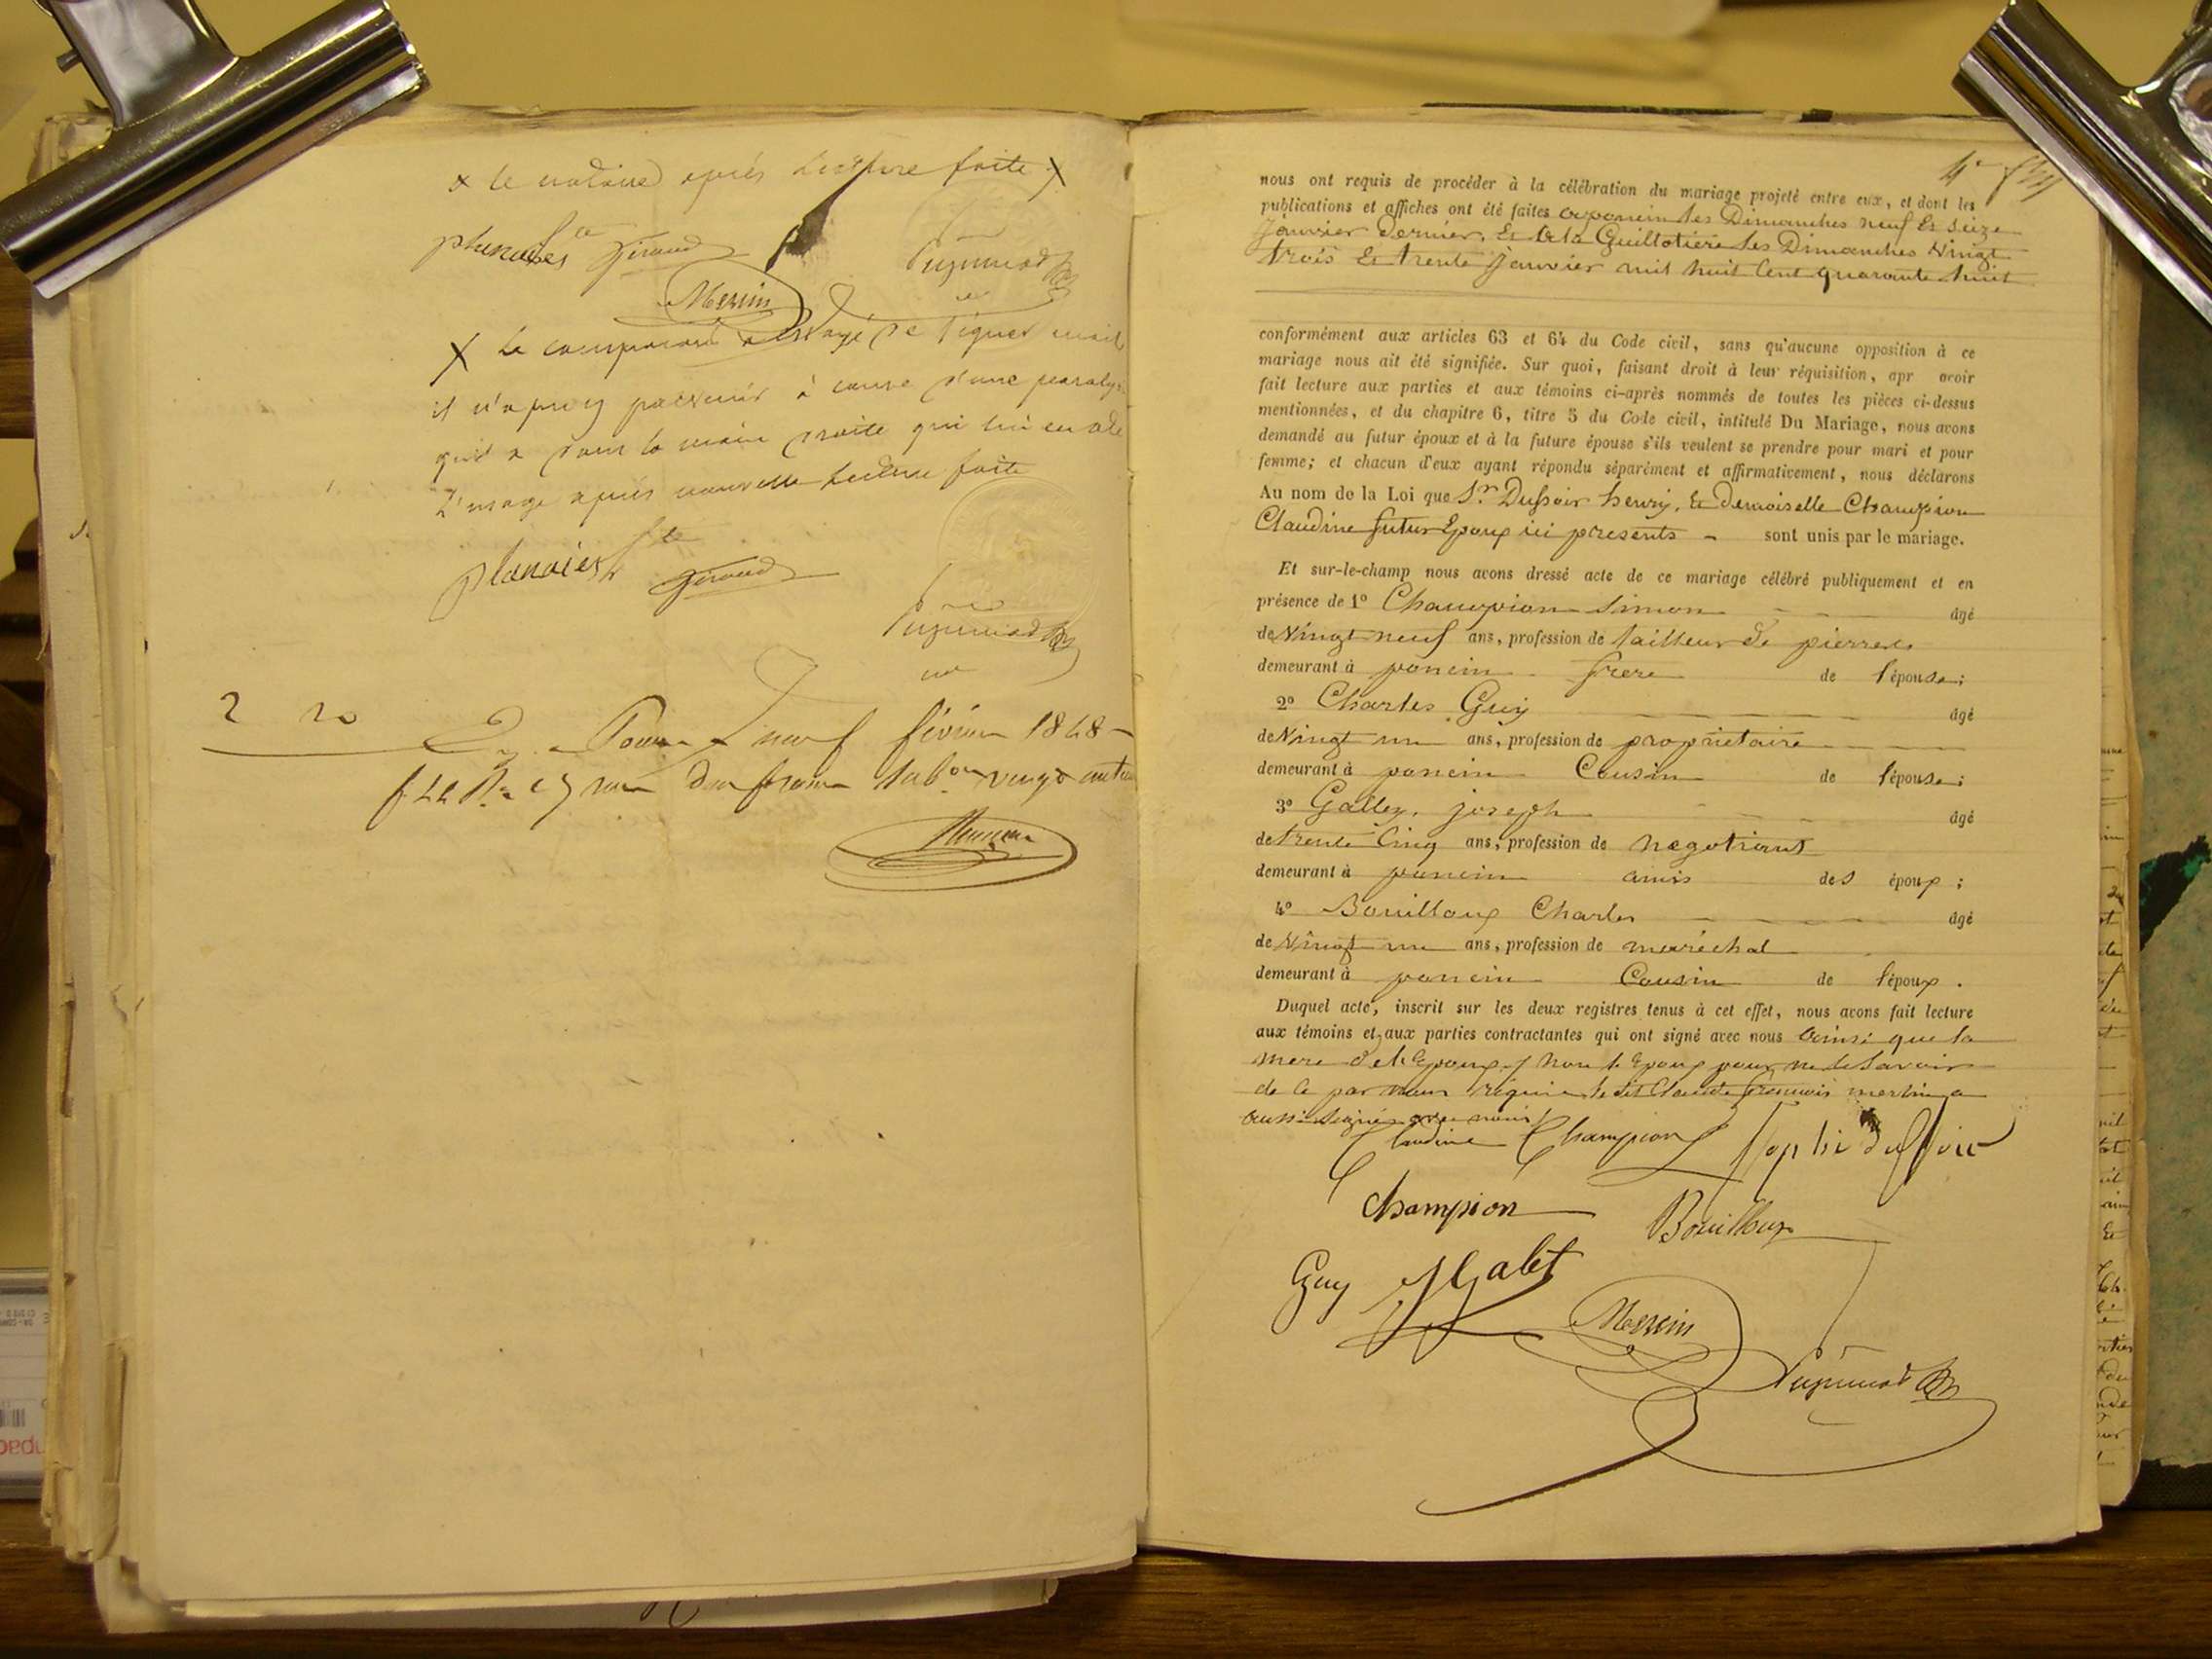 x le notaire après lecture faite x
Giraud
Mersin
X Le comparant a essayé de signer mais
il n'a pu y parvenir à cause d'une paralys
qu'il a dans la main droite qui lui en ote
L'usage après nouvelle lecture faite
Giraud
2 20
neuf février 1848
vingt
4e
nous ont requis de procéder à la célébration du mariage projeté entre eux, et dont les
publications et affiches ont été faites a poncin les Dimanches neuf Et Seize
Janvier dernier, Et A la Guillotière les Dimanches Vingt
trois Et trente Janvier mil huit Cent quarante huit
conformément aux articles 63 et 64 du Code civil, sans qu'aucune opposition à ce
mariage nous ait été signifiée. Sur quoi, faisant droit à leur réquisition, apr avoir
fait lecture aux parties et aux témoins ci-après nommés de toutes les pièces ci-dessus
mentionnées, et du chapitre 6, titre 5 du Code civil, intitulé Du Mariage, nous avons
demandé au futur époux et à la future épouse s'ils veulent se prendre pour mari et pour
femme; et chacun d'eux ayant répondu séparément et affirmativement, nous déclarons
Au nom de la Loi que Sr. Dussoir henry, Et Demoiselle Champion
Claudine futur Epoux ici presents - sont unis par le mariage.
Et sur-le-champ nous avons dressé acte de ce mariage célébré publiquement et en
présence de 1º Champion Simon âgé
de Vingt neuf ans, profession de tailleur de pierres
demeurant à poncin frere de l'épouse;
2º Charles Guy âgé
de Vingt un ans, profession de propriétaire
demeurant à poncin Cousin de l'épouse;
3º Galley, joseph âgé
de trente Cinq ans, profession de negotiant
demeurant à poncin amis des époux;
4º Bouilloux Charles âgé
de Vingt un ans, profession de maréchal
demeurant à poncin Cousin de l'époux.
Duquel acte, inscrit sur les deux registres tenus à cet effet, nous avons fait lecture
aux témoins et aux parties contractantes qui ont signé avec nous Ainsi que la
mere de l'Epoux, non l'Epoux pour ne le Savoir
de Ce par nous réquis ledit Claude françois a
aussi Signé avec nous
Claudine Champion
Champion Bouilloux
Guy Galet
Mersin